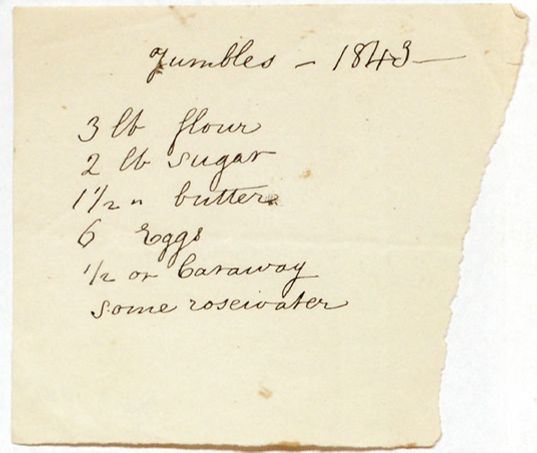 Jumbles - 1843
3 lb flour
2 lb sugar
1 1/2 " butter
6 Eggs
1/2 oz Caraway
some rosewater